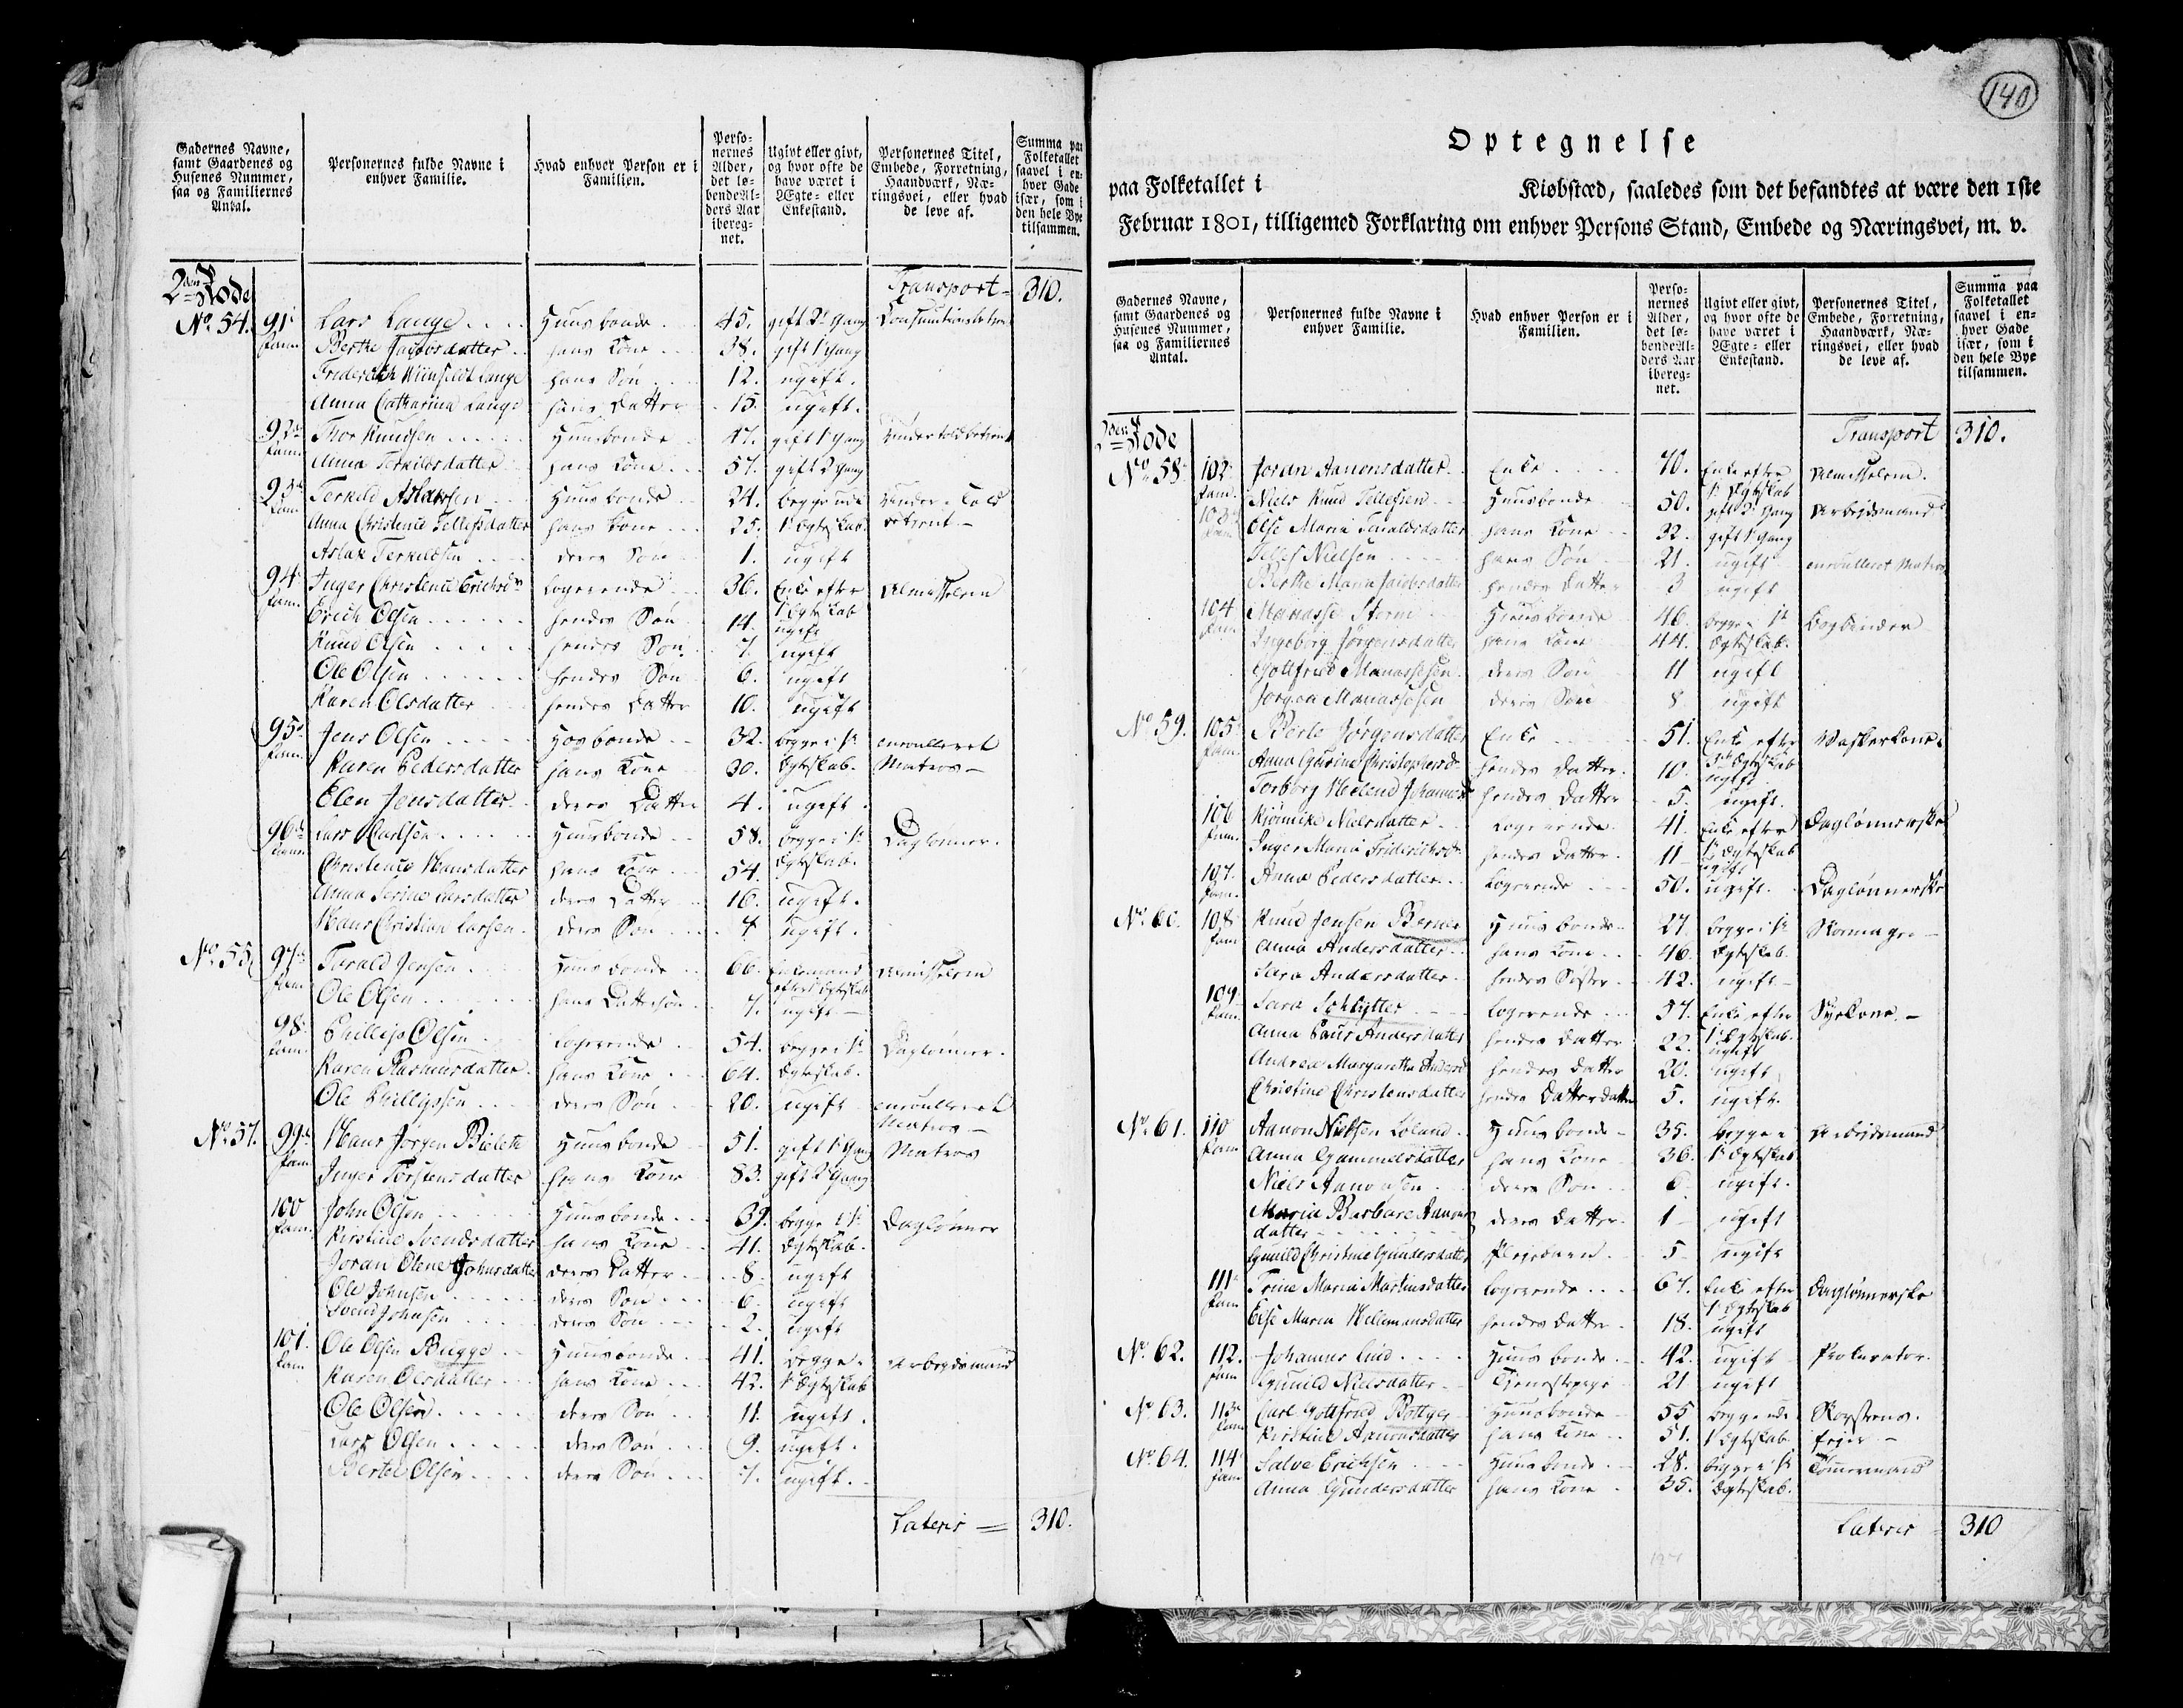 Gadernes Navne, samt Gaardenes og Husenes Nummer, saa og Familiernes Antal.
Personernes fulde Navne i enhver Familie.
Hvad enhver Person er i Familien.
Personernes Alder, det løbende Alders Aar iberegnet.
Ugivt eller givt, og hvor ofte de have været i Ægte- eller Enkestand.
Personernes Titel, Embede, Forretning, Haandværk, Næringsvei, eller hvad de leve af.
Summa paa Folketallet saavel i enhver Gade især, som i den hele Bye tilsammen.
2den Rode Transport = 310.
No. 54. 91 Fam. Lars Lange Huusbonde 45. gift 2 Gang
Berthe Jacobsdatter hans Kone 38. gift 1 Gang
Lange hans Søn 12. ugift.
Anna Catharina Lange hans Datter 15. ugift.
92 Fam. Thor Knudsen Huusbonde 47. gift 1 Gang Undertoldbetient
Anna Terkildsdatter hans Kone 57. gift 2 Gang
Fam. Terkild Aslaksen Huusbonde 24. begge udi Under-Told
Anna Christence Tellefsdatter hans Kone 25. 1 Ægteskab. betient
Aslak Terkildsen deres Søn 1. ugift
94 Fam. Inger Christence Erichsdr Logerende 36. Enke efter 1 Ægteskab Almisselem
Erich Olsen hendes Søn 14. ugift
Knud Olsen hendes Søn 7. ugift
Ole Olsen hendes Søn 6. ugift
Karen Olsdatter hendes Datter 10. ugift
95 Fam. Jens Olsen Hosbonde 32. begge i 1 enroulleret
Karen Pedersdatter hans Kone 30. Ægteskab. Matros
Elen Jensdatter deres Datter 4. ugift.
96 Fam. Lars Carlsen Huusbonde 58. begge i 1 Daglønner.
Christence Hansdatter hans Kone 54. Ægteskab.
Anna Serine Larsdatter deres Datter 16. ugift.
Hans Christian Larsen deres Søn 7 ugift.
No. 55 97 Fam. Torald Jensen Huusbonde 66. Enkemand efter 1 Ægteskab Almisselem
Ole Olsen hans Dattersøn 7. ugift
98 Fam. Phillip Olsen Logerende 54. begge i 1 Daglønner.
Karen Rasmusdatter hans Kone 64. Ægteskab.
Ole Phillipsen deres Søn 20. ugift enroulleret Matros
No. 57. 99 Fam. Hans Jørgen Bielete Huusbonde 51. gift 1 Gang Matros
Inger Torstensdatter hans Kone 83. gift 2 Gang
100 Fam. John Olsen Huusbonde 39. begge i 1 Daglønner
Kirstine Svendsdatter hans Kone 41. Ægteskab.
Joran Olene Johnsdatter deres Datter 8 ugift
Ole Johnsen deres Søn 6. ugift
Svend Johnsen deres Søn 2. ugift
101 Fam. Ole Olsen Bugge Huusbonde 41. begge i Arbeydsmand
Karen Olesdatter hans Kone 42. 1 Ægteskab
Ole Olsen deres Søn 11. ugift.
Lars Olsen deres Søn 9. ugift.
Bertel Olsen deres Søn 7. ugift.
Lateris = 310.
140
Optegnelse
paa Folketallet i Kiøbstæd, saaledes som det befandtes at være den 1ste
Februar 1801, tilligemed Forklaring om enhver Persons Stand, Embede og Næringsvei, m. v.
Gadernes Navne, samt Gaardenes og Husenes Nummer, saa og Familiernes Antal.
Personernes fulde Navne i enhver Familie.
Hvad enhver Person er i Familien.
Personernes Alder, det løbende Alders Aar iberegnet.
Ugivt eller givt, og hvor ofte de have været i Ægte- eller Enkestand.
Personernes Titel, Embede, Forretning, Haandværk, Næringsvei, eller hvad de leve af.
Summa paa Folketallet saavel i enhver Gade især, som i den hele Bye tilsammen.
2den Rode Transport 310.
No. 58 102 Fam. Joran Aanonsdatter Enke 70. Enke efter 1 Ægteskab Almisselem.
103 Fam. Niels Knud Tellefsen Huusbonde 50. gift 2 Gang Arbeydsmand
Else Maria Toraldsdatter hans Kone 32. gift 1 Gang
Tellef Nielsen hans Søn 21. ugift enroulleret Matros
Berthe Maria Jacobsdatter hendes Datter 3 ugift
104 Fam. Manasse Storm Huusbonde 46. begge i 1 Bogbinder
Ingeborg Jørgensdatter hans Kone 44. Ægteskab.
Gottfried Manassesen deres Søn 11 ugift
Jørgen Manassesen deres Søn 8 ugift
No. 59. 105 Fam. Berte Jørgensdatter Enke 51. Enke efter Ægteskab Waskerkone
Anna Gurine Christophersd. hendes Datter 10. ugift
Torborg Helene hendes Datter 5. ugift.
106 Fam. Nielsdatter Logerende 41. Enke efter 1 Ægteskab Daglønnerske
Inger Maria Friderichsdr hendes Datter 11 ugift
107. Fam. Anna Pedersdatter Logerende 50. ugift. Daglønnerske
No. 60. 108 Fam Knud Jensen Berner Huusbonde 27. begge i 1 Skomager
Anna Andersdatter hans Kone 46. Ægteskab.
Sara Andersdatter hendes Søster 42. ugift
109 Fam. Sara Schlytter Logerende 57. Enke efter 1 Ægteskab. Syekone.
Anna Andersdatter hendes Datter 22. ugift
Andrea Margaretha Andersd hendes Datter 20. ugift
Christine Christensdatter hendes Datterdatter 5. ugift.
No. 61. 110 Fam Aanon Nielsen Loland Huusbonde 35. begge i Arbeydsmand
Anna Gammelsdatter hans Kone 36. 1 Ægteskab
Niels Aanonsen deres Søn 6. ugift.
Maria Barbare Aanonsdatter deres Datter 1 ugift
Gunild Christine Gundersdatter Pleyebarn 5 ugift
111 Fam Trine Maria Martinsdatter Logerende 67. Enke efter 1 Ægteskab Daglønnerske
Else Maria Hellemansdatter hendes Datter 18. ugift
No. 62. 112. Fam Johannes Lind Huusbonde 42. ugift Prokurator.
Gunild Nielsdatter Tienestepige 21 ugift
No. 63. 113 Fam Carl Gottfried Bøttger Huusbonde 55 begge udi Skorstens-
Kirstine Aanonsdatter hans Kone 51. 1 Ægteskab feier
No. 64. 114 Fam Salve Erichsen Huusbonde 28. begge i 1 Tømmermand
Anna Gundersdatter hans Kone 35. Ægteskab.
Lateris 310